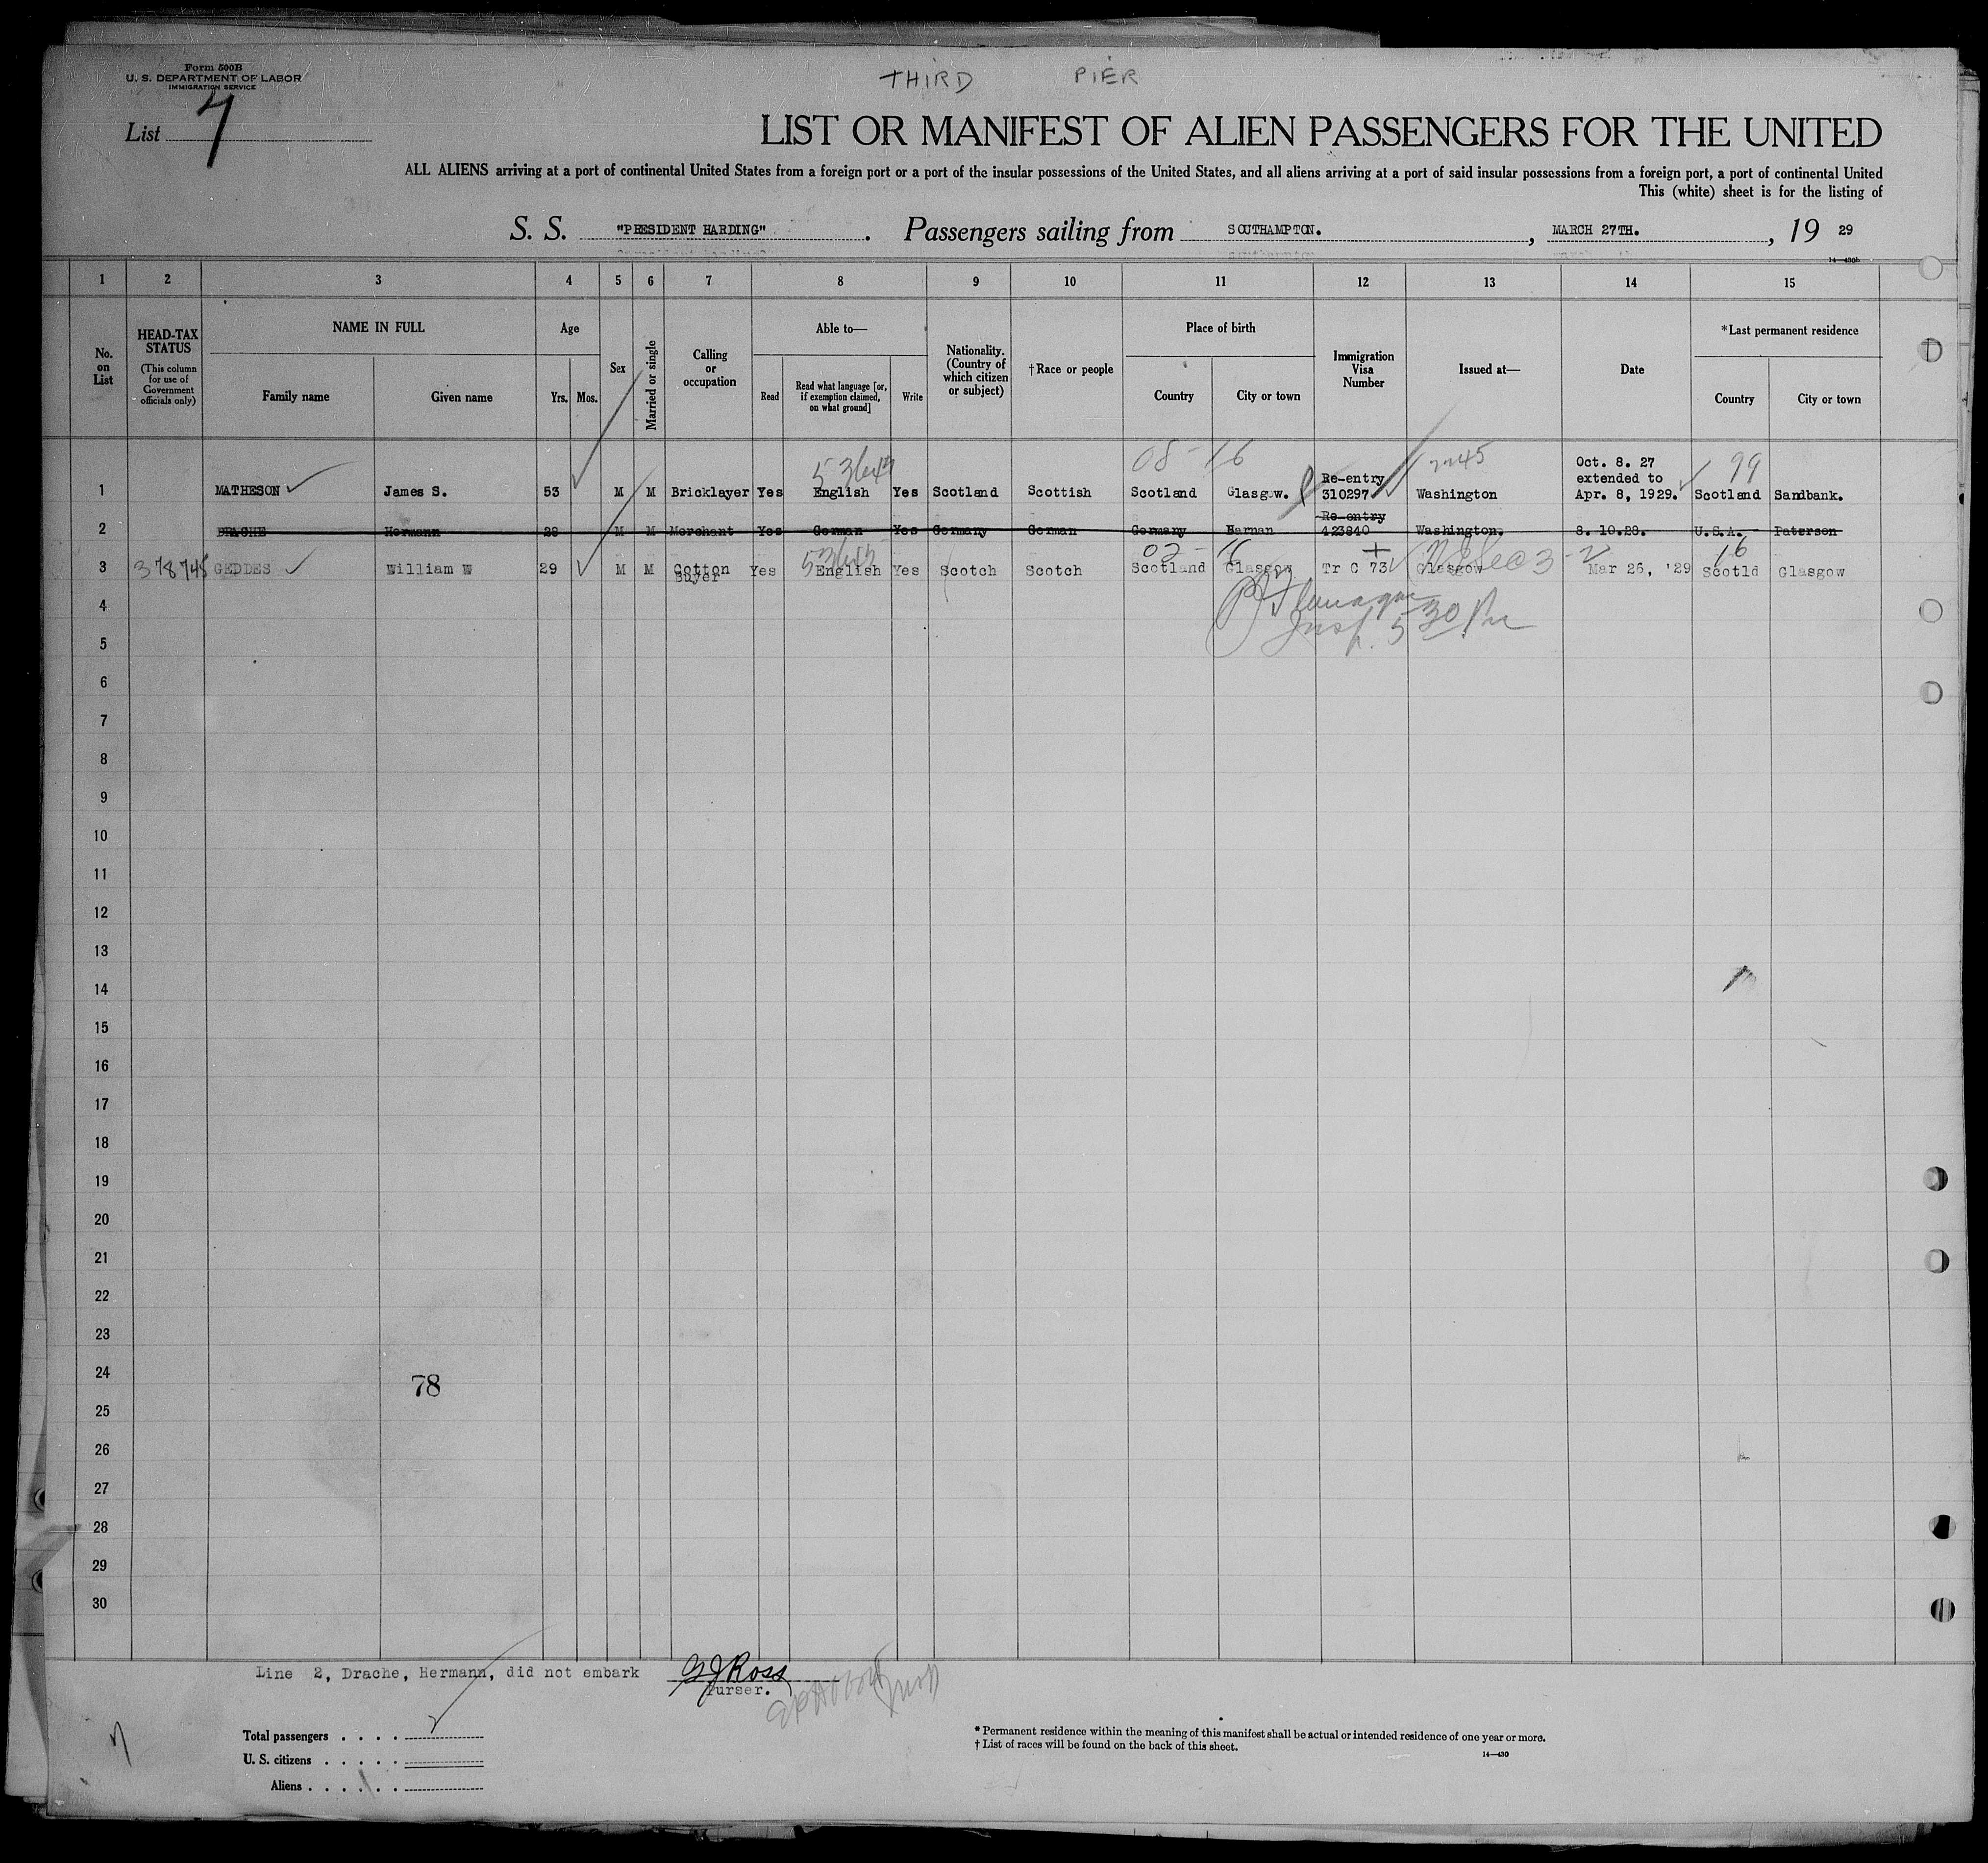 Form 500B
U. S. DEPARTMENT OF LABOR
IMMIGRATION SERVICE
THIRD PIER
List 7
LIST OR MANIFEST OF ALIEN PASSENGERS FOR THE UNITED
ALL ALIENS arriving at a port of continental United States from a foreign port or a port of the insular possessions of the United States, and all aliens arriving at a port of said insular possessions from a foreign port, a port of continental United
This (white) sheet is for the listing of
S. S. "PRESIDENT HARDING". Passengers sailing from SOUTHAMPTON., MARCH 27TH., 19 29
14—430b
1 2 3 4 5 6 7 8 9 10 11 12 13 14 15
No. on List
HEAD-TAX STATUS
(This column for use of Government officials only)
NAME IN FULL
Family name Given name
Age
Yrs. Mos.
Sex
Married or single
Calling or occupation
Able to—
Read
Read what language [or, if exemption claimed, on what ground]
Write
Nationality. (Country of which citizen or subject)
†Race or people
Place of birth
Country City or town
Immigration Visa Number
Issued at—
Date
*Last permanent residence
Country City or town
08-16 99
Oct. 8. 27
Re-entry extended to
1 MATHESON James S. 53 M M Bricklayer Yes English Yes Scotland Scottish Scotland Glasgow. 310297 Washington Apr. 8, 1929. Scotland Sandbank.
Re-entry
2 DRACHE Hermann 28 M M Merchant Yes German Yes Germany German Germany Barnan 423840 Washington. 8. 10.28. U.S.A. Paterson
02-16 16
3 378745 GEDDES William W 29 M M Cotton Buyer Yes English Yes Scotch Scotch Scotland Glasgow Tr C 73 Glasgow Mar 26, '29 Scotld Glasgow
4
Insp. 5 30 Pm
5
6
7
8
9
10
11
12
13
14
15
16
17
18
19
20
21
22
23
24
78
25
26
27
28
29
30
Line 2, Drache, Hermann, did not embark
G J Ross
Purser.
Total passengers . . . .
U. S. citizens . . . . .
Aliens . . . . . .
* Permanent residence within the meaning of this manifest shall be actual or intended residence of one year or more.
† List of races will be found on the back of this sheet.
14—430